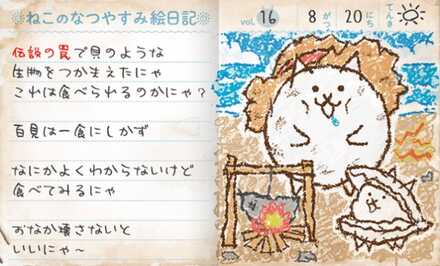 ねこのなつやすみ絵日記
vol. 16 8がつ 20にち てんき
伝説の罠で貝のような
生物をつかまえたにゃ
これは食べられるのかにゃ？
百見は一食にしかず
なにかよくわからないけど
食べてみるにゃ
おなか壊さないと
いいにゃ～